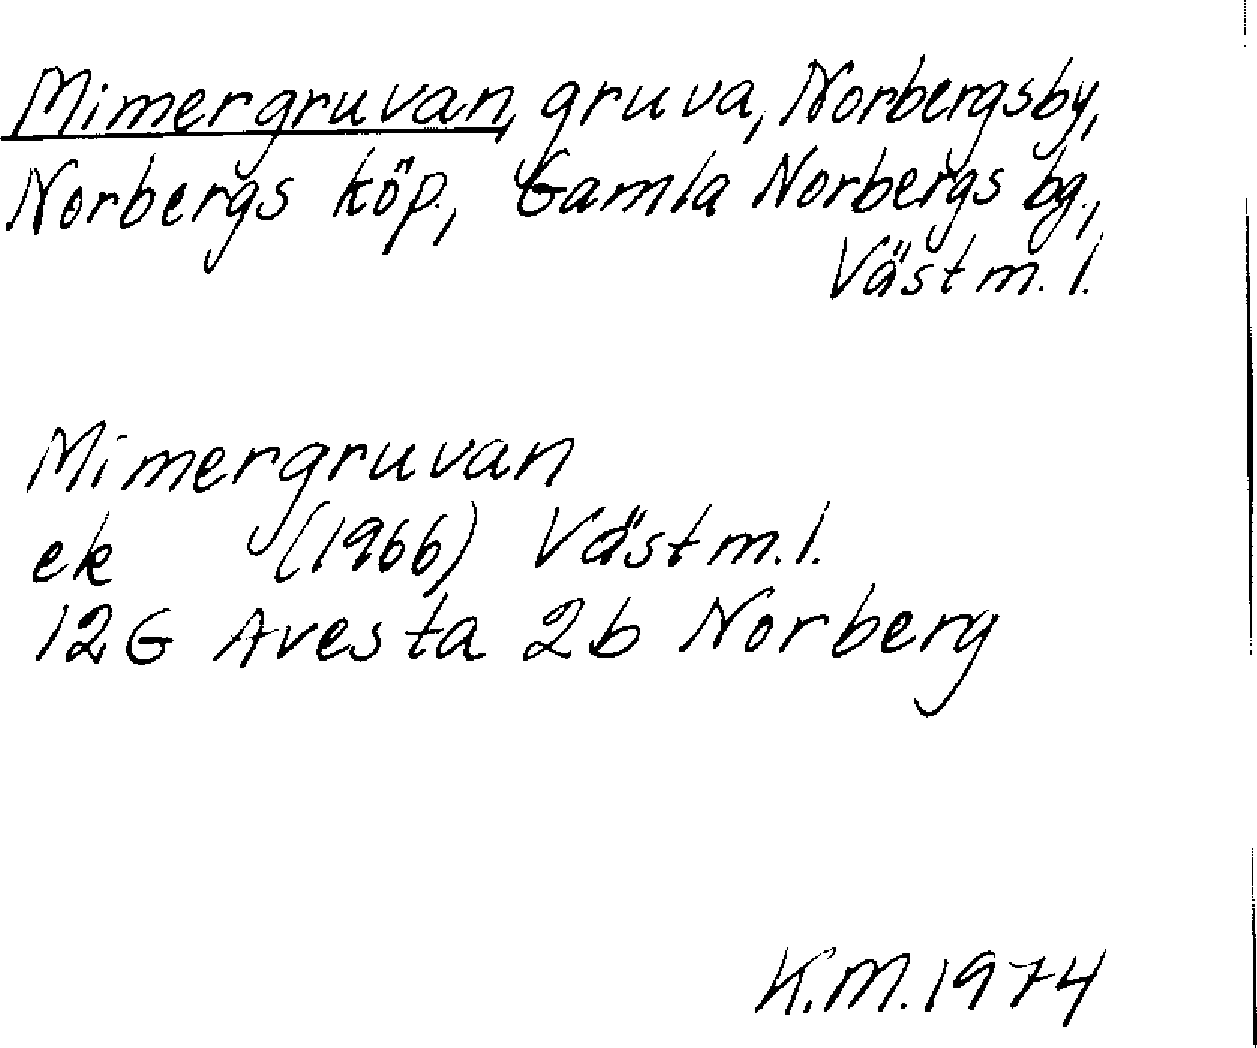 Mimergruvan, gruva, Norbergsby,
Norbergs köp., Gamla Norbergs bg.,
Västm. l.
Mimergruvan
ek (1966) Västm. l.
12G Avesta 2b Norberg
K.M. 1974